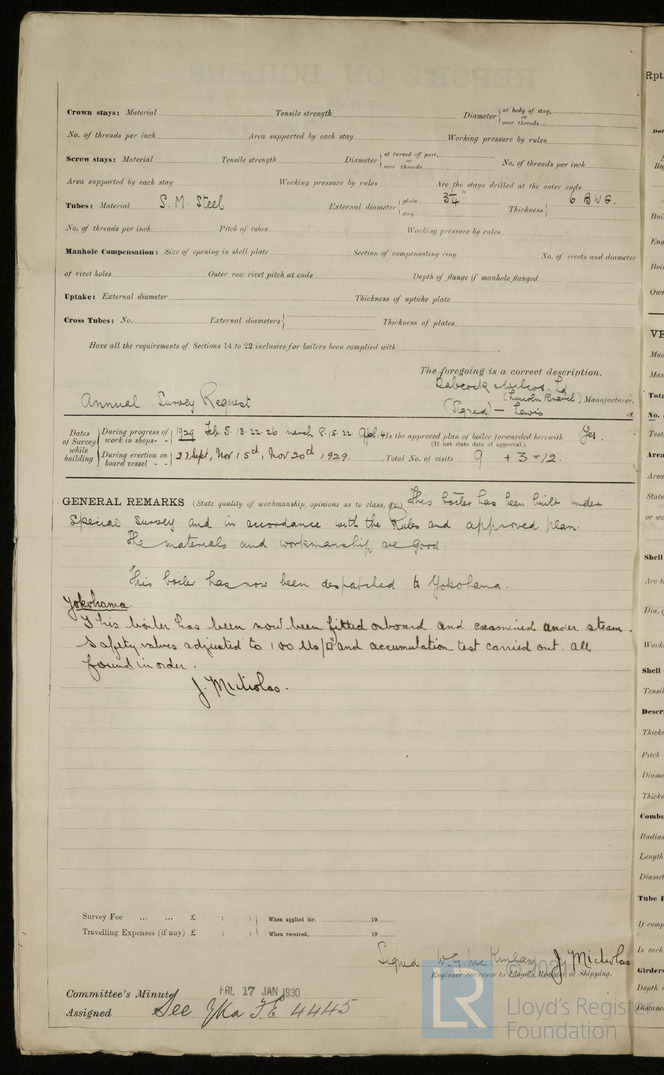 Crown stays: Material Tensile strength Diameter { at body of stay, or over threads
No. of threads per inch Area supported by each stay Working pressure by rules
Screw stays: Material Tensile strength Diameter { at turned off part, or over threads No. of threads per inch
Area supported by each stay Working pressure by rules Are the stays drilled at the outer ends
Tubes: Material S.M. Steel External diameter { plain stay 3¼" Thickness { 6 B.W.G.
No. of threads per inch Pitch of tubes Working pressure by rules
Manhole Compensation: Size of opening in shell plate Section of compensating ring No. of rivets and diameter
of rivet holes Outer row rivet pitch at ends Depth of flange if manhole flanged
Uptake: External diameter Thickness of uptake plate
Cross Tubes: No. External diameters { Thickness of plates
Have all the requirements of Sections 14 to 22 inclusive for boilers been complied with
The foregoing is a correct description,
Babcock & Wilcox Ld
(Lincoln Branch) Manufacturer.
Annual Survey Request
(Signed) — Lewis
Dates of Survey while building
During progress of work in shops - - 1929 Feb. 5. 13. 22. 26 March 8. 15. 22 Apl. 4 Is the approved plan of boiler forwarded herewith Yes.
(If not state date of approval.)
During erection on board vessel - - 27 Sept, Nov 15th, Nov 20th, 1929. Total No. of visits 9 + 3 = 12.
GENERAL REMARKS (State quality of workmanship, opinions as to class, &c.) This boiler has been built under
Special Survey and in accordance with the Rules and approved plan.
The materials and workmanship are good.
This boiler has now been despatched to Yokohama.
Yokohama.
This boiler has been now been fitted onboard and examined under steam.
Safety valves adjusted to 100 lbs/□" and accumulation test carried out. all
found in order.
J. Nicholas.
Survey Fee ... ... £ : : } When applied for, 19
Travelling Expenses (if any) £ : : } When received, 19
Signed W.G. McKinlay J. Nicholas
Engineer Surveyor to Lloyd's Register of Shipping.
Committee's Minute FRI. 17 JAN 1930
Assigned See Yka F.E. 4445
© 2021
LR
Lloyd's Register
Foundation
Rpt